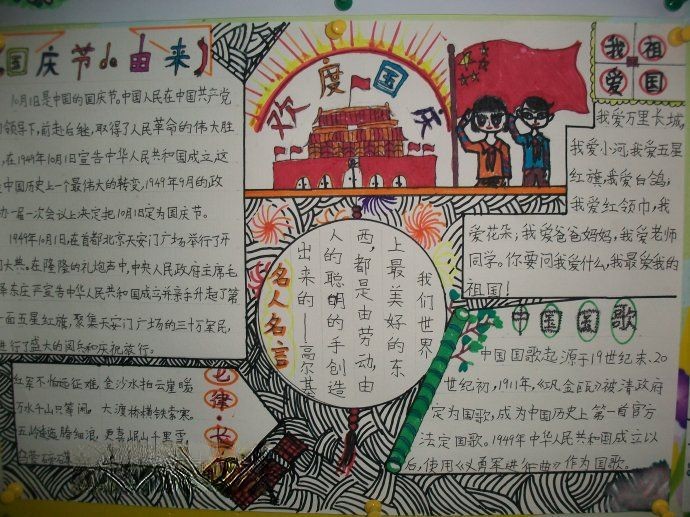 国庆节的由来
10月1日是中国的国庆节,中国人民在中国共产党
领导下,前赴后继,取得了人民革命的伟大胜
,在1949年10月1日宣告中华人民共和国成立,这
是中国历史上一个最伟大的转变,1949年9月的政
办一届一次会议上决定把10月1日定为国庆节。
1949年10月1日,在首都北京天安门广场举行了开
国大典。在隆隆的礼炮声中,中央人民政府主席毛
泽东庄严宣告中华人民共和国成立并亲手升起了第
一面五星红旗,聚集天安门广场的三十万军民,
进行了盛大的阅兵和庆祝旅行。
欢度国庆
我爱祖国
我爱万里长城,
我爱小河,我爱五星
红旗,我爱白鸽;
我爱红领巾,我
爱花朵,我爱爸爸妈妈,我爱老师
同学。你要问我爱什么,我最爱我的
祖国!
名人名言
我们世界
上最美好的东
西,都是由劳动,由
人的聪明的手创造
出来的——高尔基
七律·长
红军不怕远征难,金沙水拍云崖暖,
万水千山只等闲。大渡桥横铁索寒。
五岭逶迤腾细浪,更喜岷山千里雪,
中国国歌
中国国歌起源于19世纪末、20
世纪初,1911年,《巩金瓯》被清政府
定为国歌,成为中国历史上第一首官方
法定国歌。1949年中华人民共和国成立以
后,使用《义勇军进行曲》作为国歌。